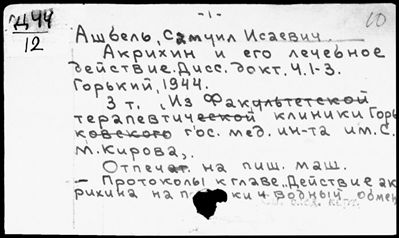 -1-
Д44
12
10
Ашбель, Самуил Исаевич
Акрихин и его лечебное
действие. Дисс. докт. Ч. 1-3.
Горький, 1944.
3 т. , Из Факультетской
терапевтической клиники Горь
ковского гос. мед. ин-та им. С.
М. Кирова,.
Отпечат. на пиш. маш.
- Протоколы к главе. Действие ак
рихина на п ки и водный обмен